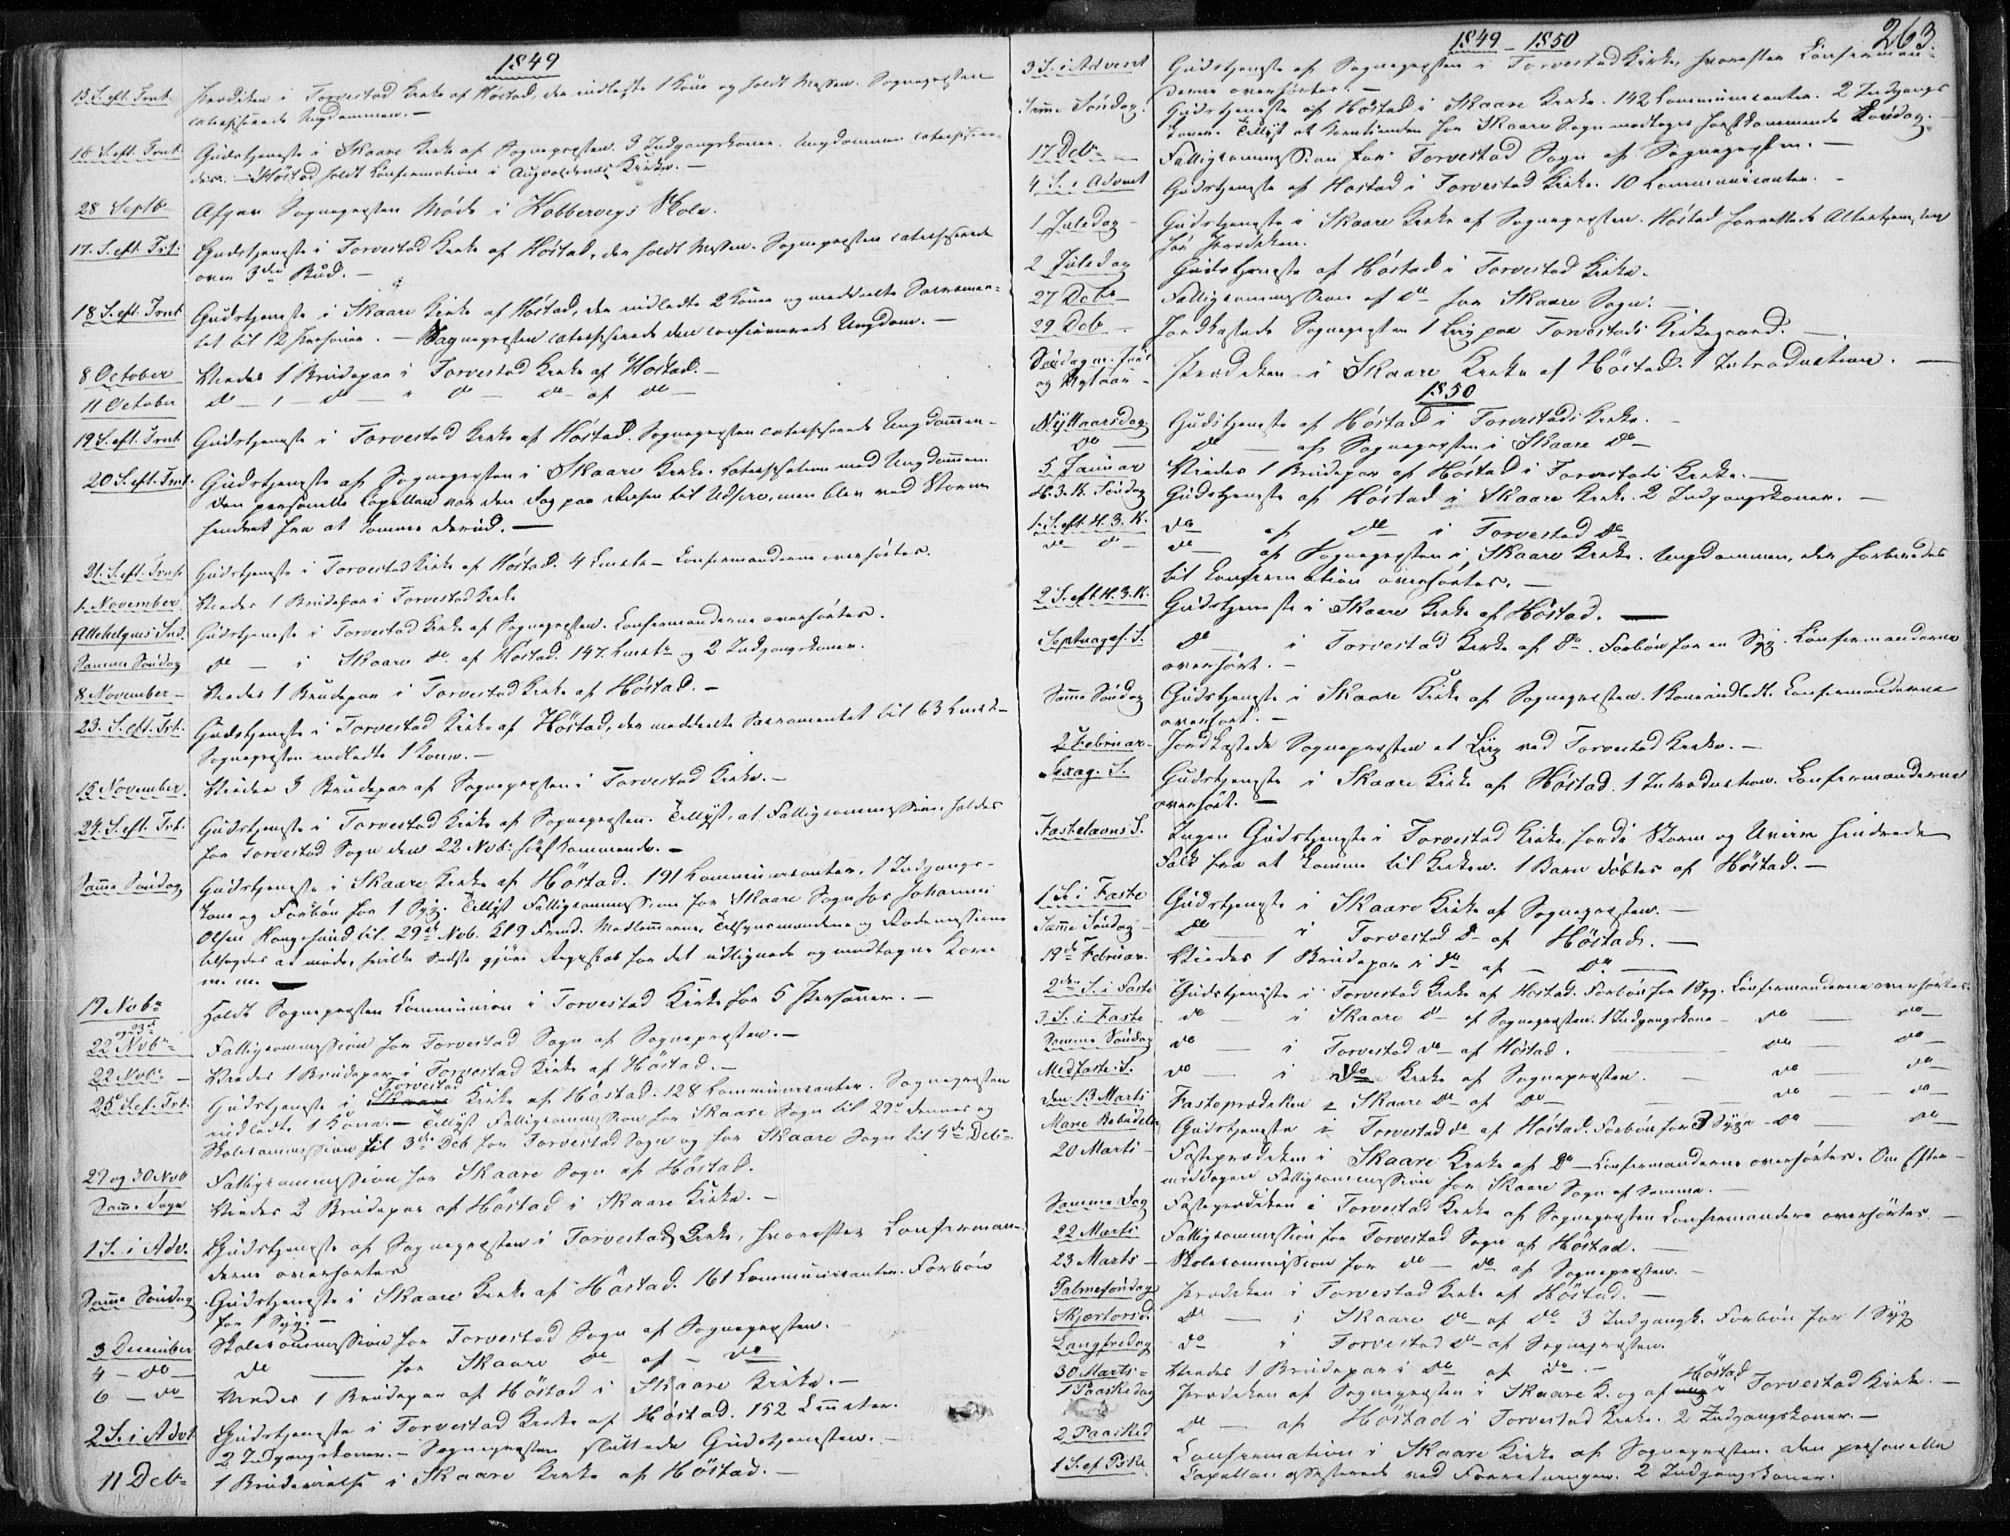 1849
15 S. eft. Trnt. Prædiken i Torvestad Kirke af Höstad, der indledte 1 Kone og holdt Messen. Sognepræsten
catechiserede Ungdommen. —
16 S. eft. Trnt. Gudstjeneste i Skaare Kirke af Sognepræsten. 3 Indgangskoner. Ungdommen catechisere-
des. — Höstad holdt Confirmation i Augvaldsnes Kirke. —
28 Septb. Afgav Sognepræsten Møde i Kobbervegs Skole.
17. S. eft. Trt. Gudstjeneste i Torvestad Kirke af Höstad, der holdt Messen. Sognepræsten catechiserede
over 3die Bud. —
18 S. eft. Trnt. Gudstjeneste i Skaare Kirke af Höstad, der indledte 2 Koner og meddeelte Sacramen-
tet til 12 Personer. — Sognepræsten catechiserede den confirmerede Ungdom. —
8 October Viedes 1 Brudepar i Torvestad Kirke af Höstad. —
11 October do — 1 — do — " do — do — af do —
19 S. eft. Trnt. Gudstjeneste i Torvestad Kirke af Höstad. Sognepræsten catechiserede Ungdommen. —
20 S. eft. Trnt. Gudstjeneste af Sognepræsten i Skaare Kirke. Catechisation med Ungdommen.
Den personelle Capellan var den Dag paa Reisen til Udsire, men blev ved Storm
hindret fra at komme derud. —
21. S. eft. Trnt. Gudstjeneste i Torvestad Kirke af Höstad. 4 — Confirmanderne overhörtes.
1. November Viedes 1 Brudepar i Torvestad Kirke
Allehelgens Snd. Gudstjeneste i Torvestad Kirke af Sognepræsten. Confirmanderne overhörtes.
Samme Söndag do — i Skaare do af Höstad. 147 og 2 Indgangskoner.
8 November — Viedes 1 Brudepar i Torvestad Kirke af Höstad. —
23. S. eft. Trt. Gudstjeneste i Torvestad Kirke af Höstad, der meddeelte Sacramentet til 63
Sognepræsten indledte 1 Kone. —
15 November. Viedes 3 Brudepar af Sognepræsten i Torvestad Kirke. —
24. S. eft. Trt. Gudstjeneste i Torvestad Kirke af Sognepræsten. Tillyst, at Fattigcommission holdes
for Torvestad Sogn den 22 Nob. förstkommende. —
Samme Söndag Gudstjeneste i Skaare Kirke af Höstad. 191 Communicanter. 1 Indgangs-
kone og Forbön for 1 Syg. Tillyst Fattigcommission for Skaare Sogn hos Johannes
Olsen Haugesund til 29de Nob. Kl 9 Formd. Medlemmerne, Tilsynsmændene og Rodemestrene
tilsagdes at møde, hvilke Sidste gjöre Regnskab for det udlignede og modtagne Korn
m. m. —
19 Nobr Holdt Sognepræsten Communion i Torvestad Kirke for 5 Personer. —
22 og 23d Nobr Fattigcommission for Torvestad Sogn af Sognepræsten. —
22 Nob. — Viedes 1 Brudepar i Torvestad Kirke af Höstad. —
25 S. ef. Trt. Gudstjeneste i Torvestad Kirke af Höstad. 128 Communicanter. Sognepræsten
indledte 1 Kone. — Tillyst Fattigcommission for Skaare Sogn til 29de dennes og
Skolecommission til 3die Deb for Torvestad Sogn og for Skaare Sogn til 4de Deb.
29 og 30 Nob Fattigcommission for Skaare Sogn af Höstad.
Samme Dage Viedes 2 Brudepar af Höstad i Skaare Kirke. —
1 S. i Adv. Gudstjeneste af Sognepræsten i Torvestad Kirke, hvorefter Confirman-
derne overhörtes
Samme Söndag Gudstjeneste i Skaare Kirke af Höstad. 161 Communicanter. Forbön
for 1 Syg. —
3 December Skolecommission for Torvestad Sogn af Sognepræsten.
4 — do — do — for Skaare do af — do
6 — do Viedes 1 Brudepar af Höstad i Skaare Kirke. —
2 S. i Advt Gudstjeneste i Torvestad Kirke af Höstad. 152
2 Indgangskoner. — Sognepræsten sluttede Gudstjenesten. —
11 Deb. 1 Brudevielse i Skaare Kirke af Höstad. —
1849 – 1850
263.
3 S. i Advent Gudstjeneste af Sognepræsten i Torvestad Kirke, hvorefter Confirman-
derne overhörtes. —
Samme Söndag. Gudstjeneste af Höstad i Skaare Kirke. 142 Communicanter. 2 Indgangs
koner. Tillyst at Korntienden for Skaare Sogn modtages förstkommende Löverdag. —
17 Deb. — Fattigcommission for Torvestad Sogn af Sognepræsten. —
4. S. i Advent Gudstjeneste af Höstad i Torvestad Kirke. 10 Communicanter. —
1 Juledag — Gudstjeneste i Skaare Kirke af Sognepræsten. Höstad forrettede Altertjenesten
för Prædiken.
2 Juledag Gudstjeneste af Höstad i Torvestad Kirke.
27 Deb. Fattigcommission af do for Skaare Sogn. —
29 Deb — Jordkastede Sognepræsten 1 Liig paa Torvestads Kirkegaard. —
Söndag m. Juul og Nytaar — Prædiken i Skaare Kirke af Höstad. 1 Introduction. —
1850
Nyttaarsdag Gudstjeneste af Höstad i Torvestads Kirke. —
do — do — af Sognepræsten i Skaare do —
5 Januar Viedes 1 Brudepar af Höstad i Torvestads Kirke. —
H. 3. K. Söndag Gudstjeneste af Höstad i Skaare Kirke. 2 Indgangskoner. —
1. S. eft. H. 3. K. do af do i Torvestad do
do — do — do — af Sognepræsten i Skaare Kirke. Ungdommen, der forberedes
til Confirmation overhörtes. —
2 S. eft H. 3. K. Gudstjeneste i Skaare Kirke af Höstad. —
Septuages. S. do i Torvestad Kirke af do. Forbön for en Syg. Confirmanderne
overhört. —
Samme Söndag Gudstjeneste i Skaare Kirke af Sognepræsten. 1 Kone indledt. Confirmanderne
overhört. —
2 Februar. Jordkastede Sognepræsten et Liig ved Torvestad Kirke. —
Sexag. S. Gudstjeneste i Skaare Kirke af Höstad. 1 Introduction. Confirmanderne
overhört. —
Fastelavns S. Ingen Gudstjeneste i Torvestad Kirke fordi Storm og Uveir hindrede
Folk fra at komme til Kirken. 1 Barn döbtes af Höstad. —
1 S. i Faste Gudstjeneste i Skaare Kirke af Sognepræsten. —
Samme Söndag do — i Torvestad do af Höstad. —
19de Februar. Viedes 1 Brudepar i do af — do —
2den S. i Faste Gudstjeneste i Torvestad Kirke af Höstad. Forbön for 1 Syg. Confirmanderne overhörtes.
3 S. i Faste do — i Skaare do af Sognepræsten. 1 Indgangskone — do — do —
Samme Söndag do — i Torvestad do — af Höstad. do — do —
Midfaste S. do — i do Kirke af Sognepræsten. do — do
Den 13 Marti Fasteprædiken i Skaare do af do — do — do —
Mariæ Bebudelse Gudstjeneste i Torvestad do af Höstad. Forbön for 3 Syge — do — do —
20 Marti — Fasteprædiken i Skaare Kirke af do — Confirmanderne overhörtes. Om Efter-
middagen Fattigcommission for Skaare Sogn af Samme. —
Samme Dag Fasteprædiken i Torvestad Kirke af Sognepræsten Confirmandere overhörtes —
22 Marti Fattigcommission for Torvestad Sogn af Höstad. —
23 Marts — Skolecommission for do — do af Sognepræsten. —
Palmesöndag Prædiken i Torvestad Kirke af Höstad. —
Skjertorsd. do — i Skaare do — af do 3 Indgangsk. Forbön for 1 Syg
Langfredag do — i Torvestad do — af Sognepræsten.
30 Marts = Viedes 1 Brudepar i do af do. —
1 Paaskedag Prædiken af Sognepræsten i Skaare K. og af Höstad i Torvestad Kirke. —
2 Paasked do — af Höstad i Torvestad Kirke. 2 Indgangskoner. —
1 S. ef. Pske. Confirmation i Skaare Kirke af Sognepræsten. Den personelle
Capellan assisterede ved Forretningen. 2 Indgangskoner.